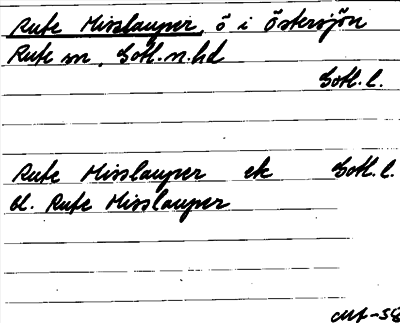 Rute Misslauper, ö i Östersjön
Rute sn, Gotl.n.hd
Gotl.l.
Rute Misslauper ek Gotl.l.
Bl. Rute Misslauper